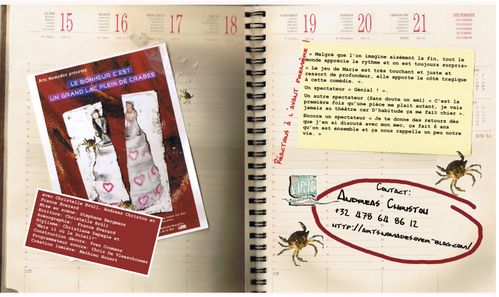 15
16
17
18
Arts Nomades présente
LE BONHEUR C'EST
UN GRAND LAC PLEIN DE CRABES
avec Christelle Brüll, Andreas Christou et
France Everard
Mise en scène: Stéphane Bergmans
Ecriture: Christelle Brüll
Scénographie: France Everard
Costumes: Christiane
"Mais il où le Soleil?"
Construction décors: Yves Coumans
Programmateur sonore: Chris De Vleeschouwer
Création lumière: Mathieu Houart
19
20
21
DÉCEMBRE
Réactions à l'avant première:
« Malgré que l'on imagine aisément la fin, tout le
monde apprécie le rythme et on est toujours surpris»
« Le jeu de Marie est très touchant et juste et
ressort de profondeur. Elle apporte le côté tragique
à cette comédie. ».
Un spectateur « Génial ! ».
Un autre spectateur (Sans doute un ami) « C'est la
première fois qu'une pièce me plait autant, je vais
jamais au théâtre car D'habitude ça me fait chier ».
Encore un spectateur « Je te donne des retours dès
que j'en ai discuté avec mon mec, ça fait 6 ans
qu'on est ensemble et ça nous rappelle un peu notre
vie. »
CONTACT:
ANDREAS CHRISTOU
+32 478 64 86 12
HTTP://ARTSNOMADES.OVER-BLOG.COM/